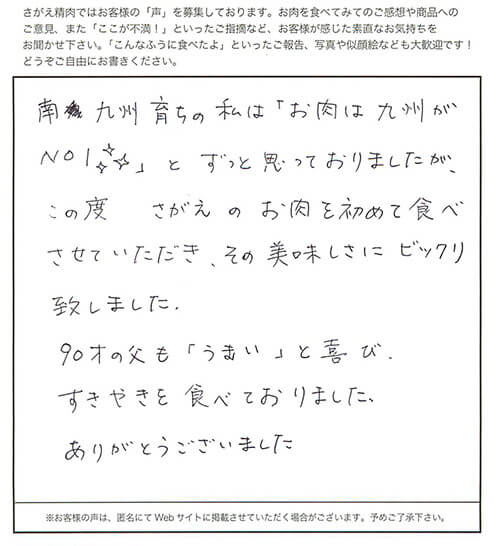 さがえ精肉ではお客様の「声」を募集しております。お肉を食べてみてのご感想や商品への
ご意見、また「ここが不満！」といったご指摘など、お客様が感じた素直なお気持ちを
お聞かせ下さい。「こんなふうに食べたよ」といったご報告、写真や似顔絵なども大歓迎です！
どうぞご自由にお書きください。
南九州育ちの私は「お肉は九州が
NO1」とずっと思っておりましたが、
この度 さがえのお肉を初めて食べ
させていただき、その美味しさにビックリ
致しました。
90才の父も「うまい」と喜び、
すきやきを食べておりました。
ありがとうございました
※お客様の声は、匿名にてWebサイトに掲載させていただく場合がございます。予めご了承下さい。